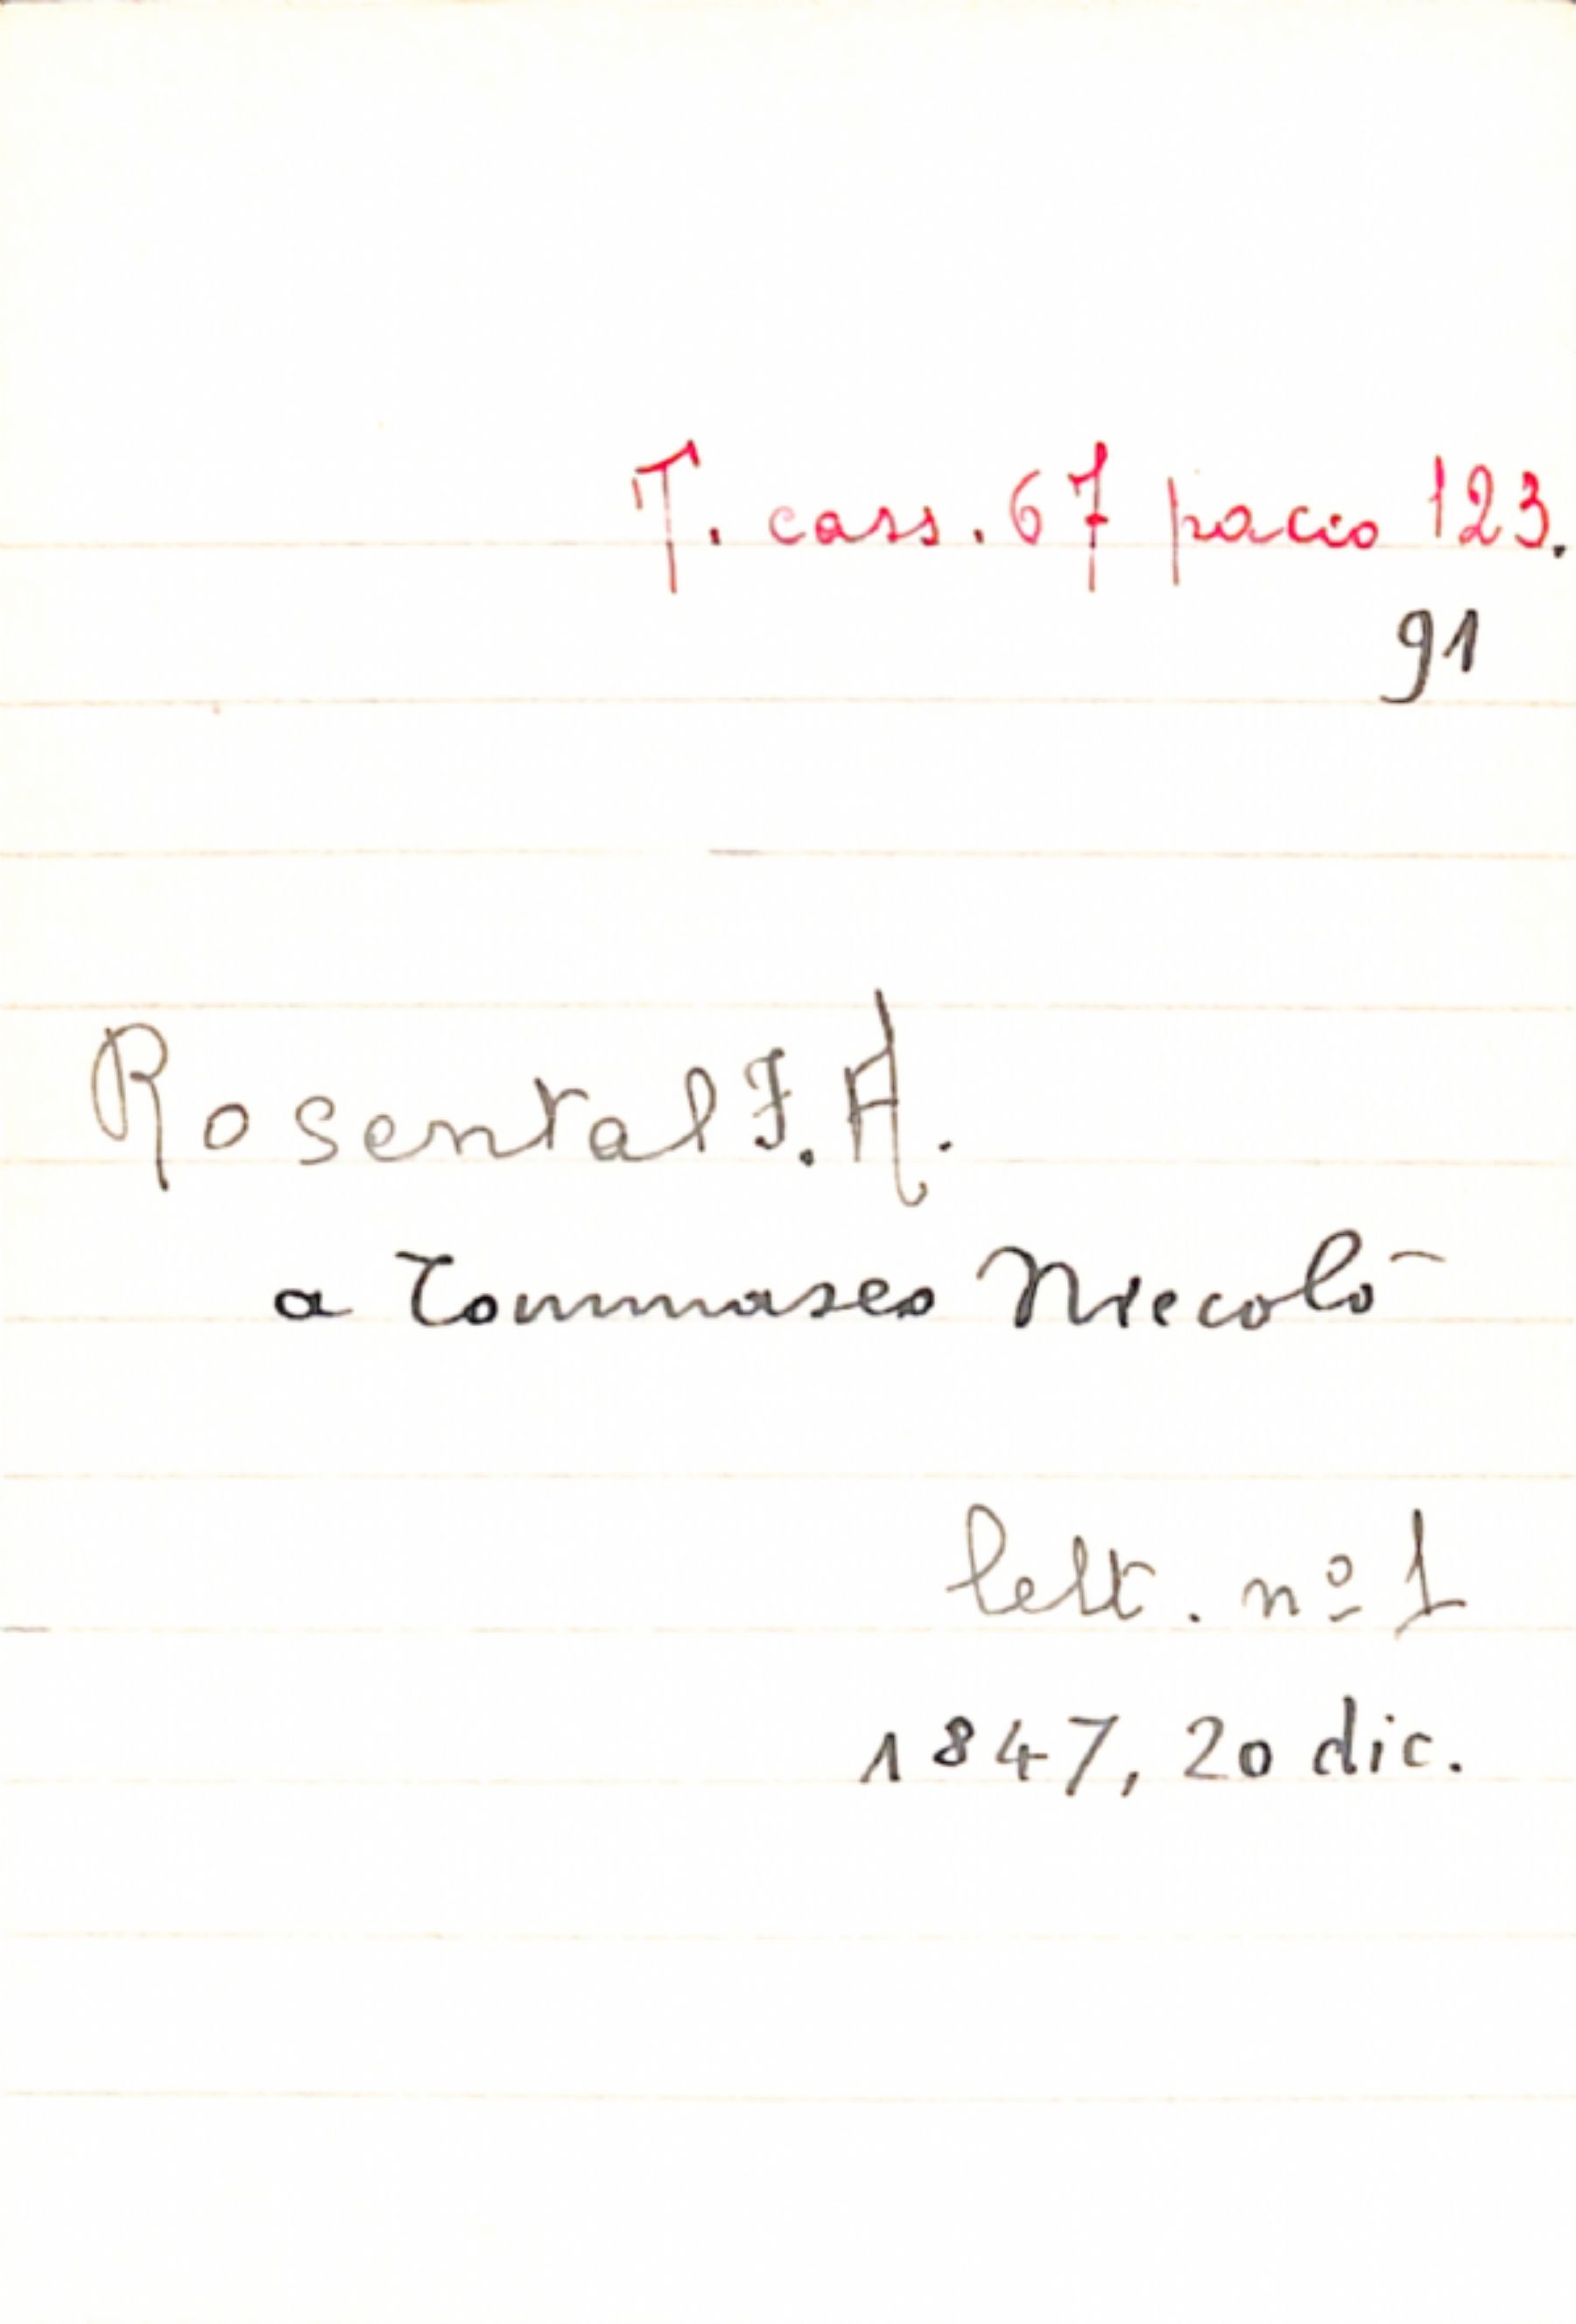 T. cass. 67 pacco 123.
91
Rosental F. A.
a Tommaseo Niccolò
lett. nº 1
1847, 20 dic.